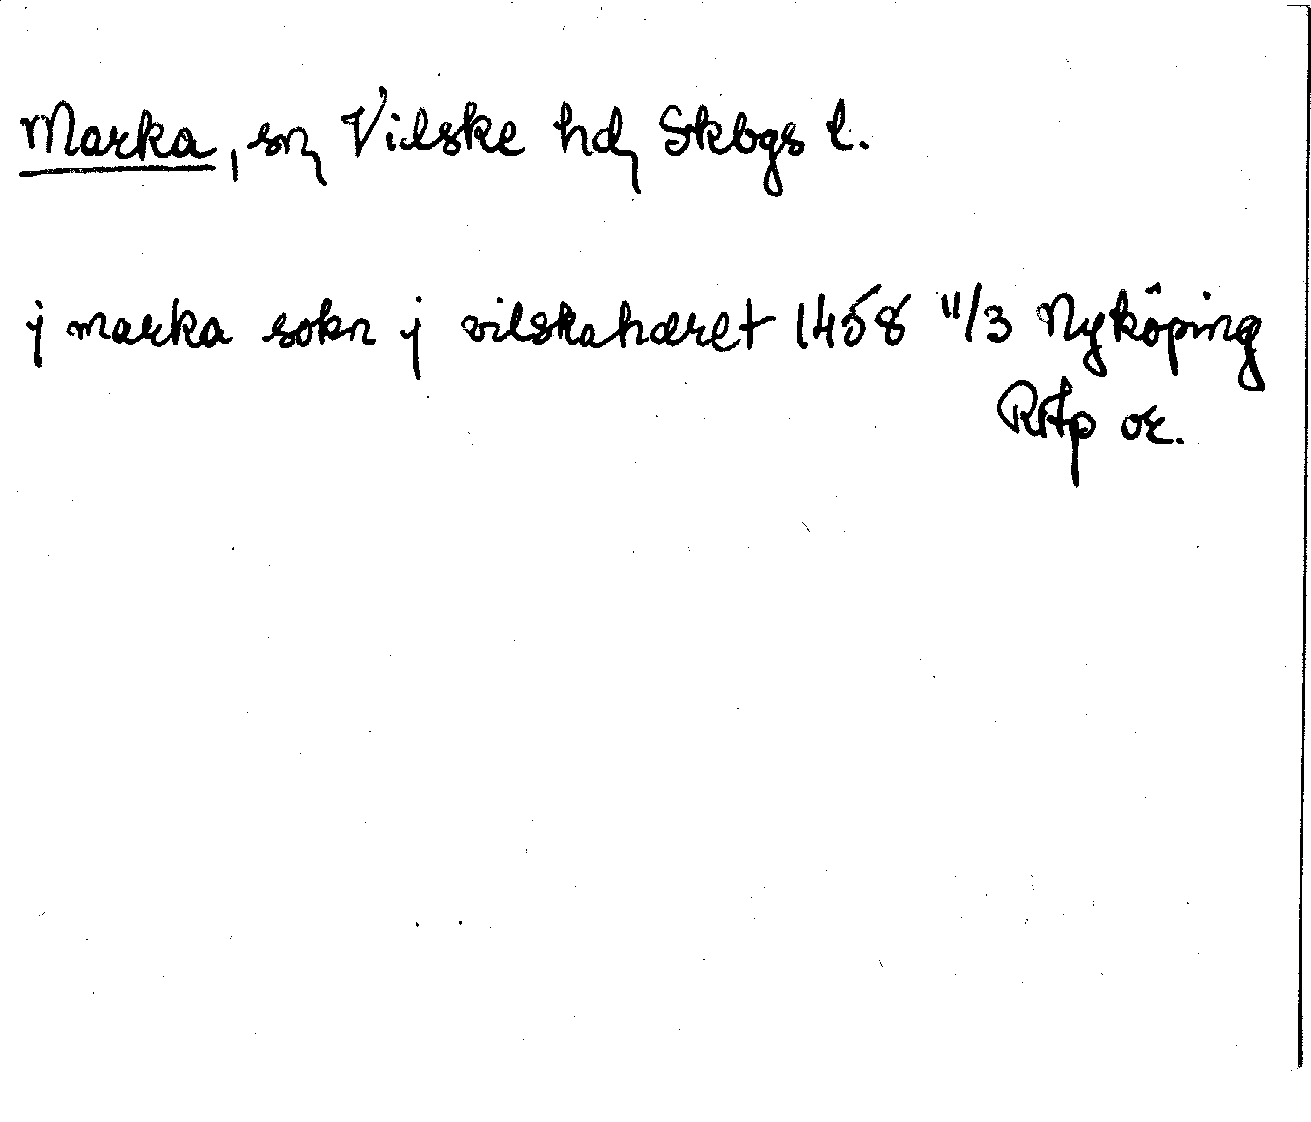 Marka, sn, Vilske hd, Skbgs l.
j marka sokn j vilskahæret 1458 11/3 Nyköping
RAp or.